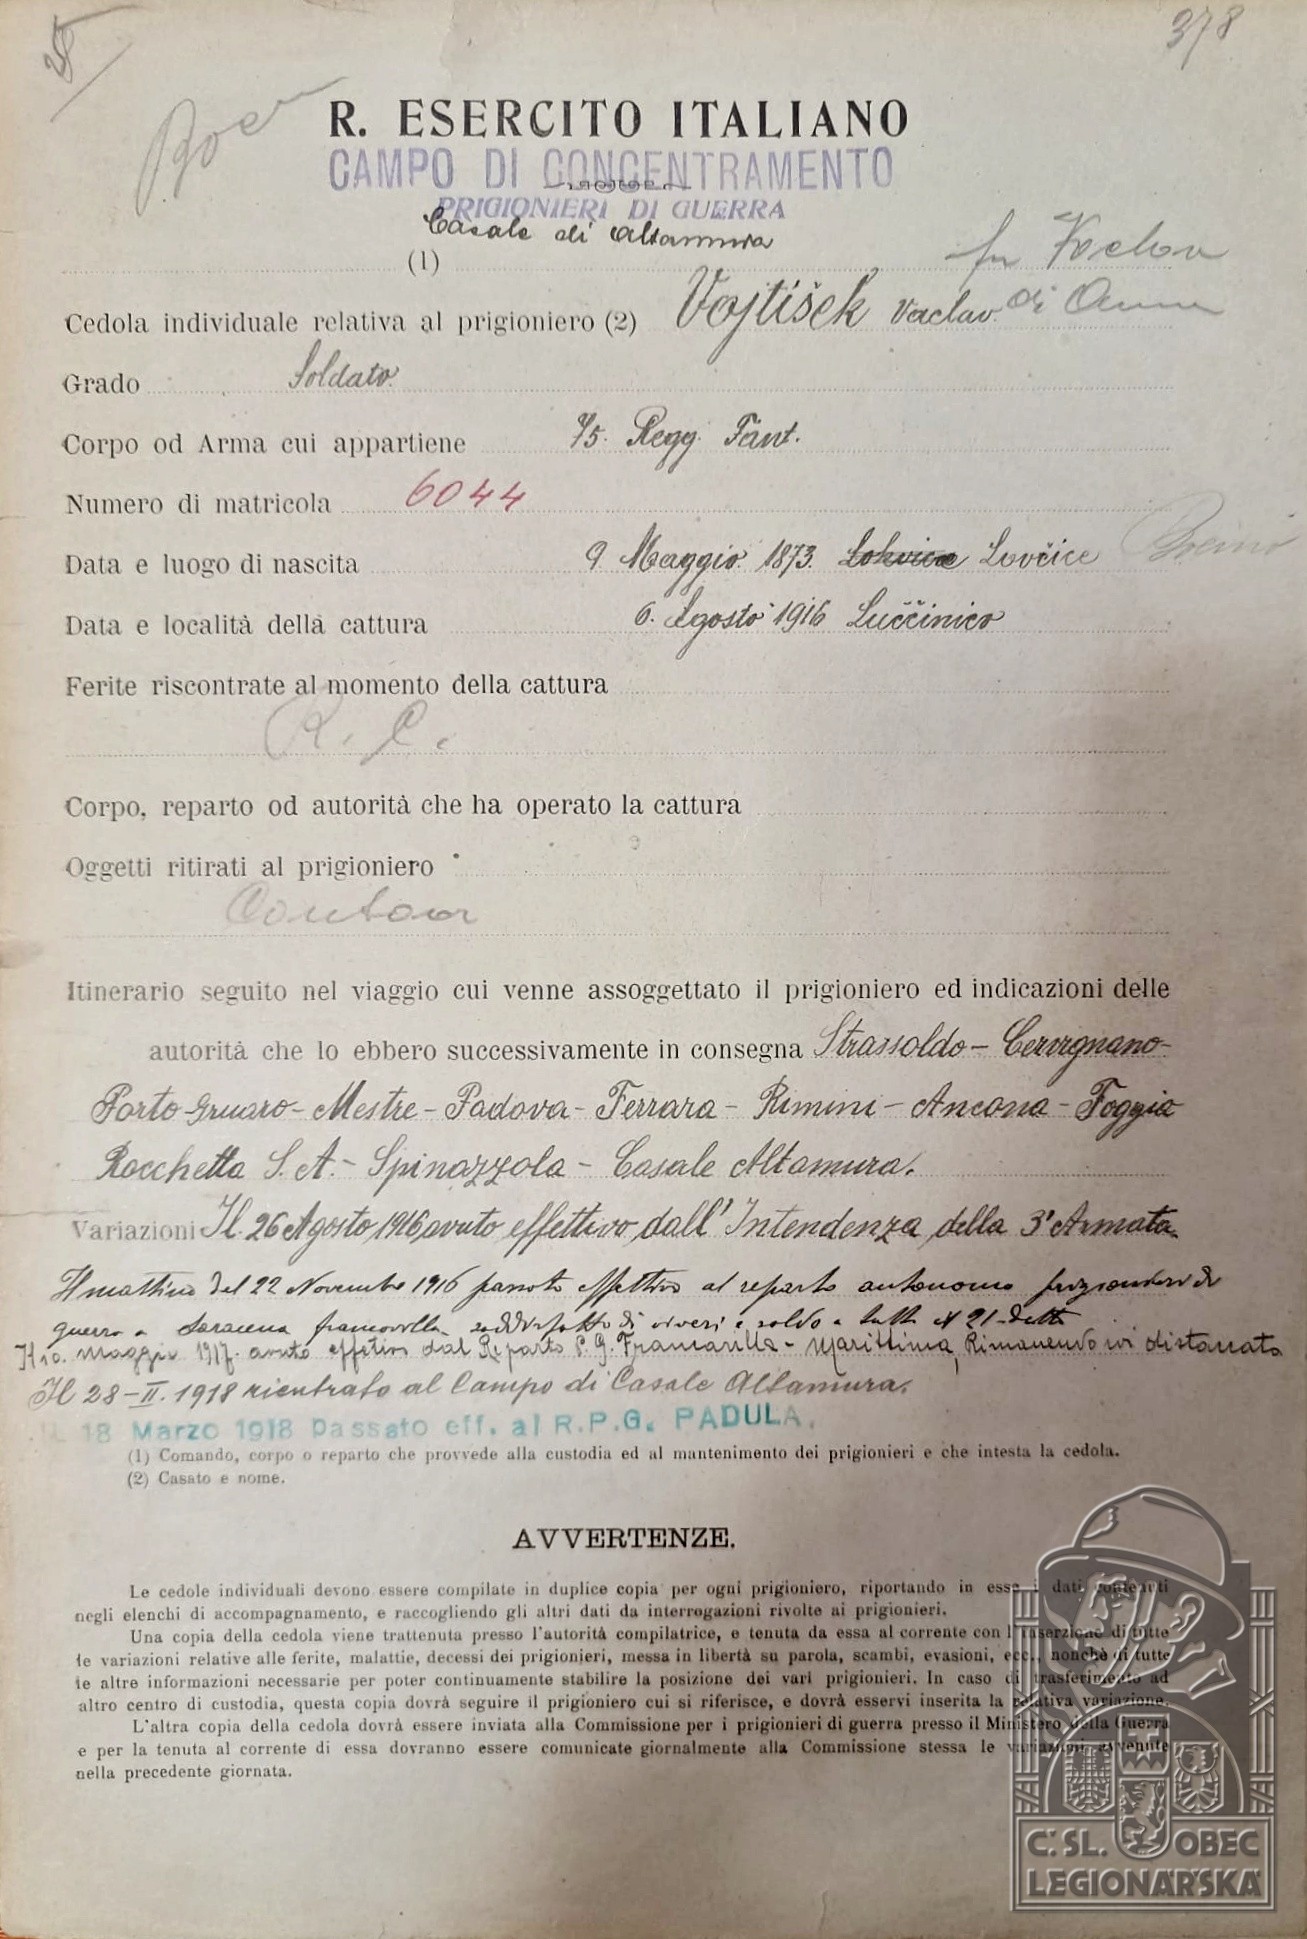 378
R. ESERCITO ITALIANO
CAMPO DI CONCENTRAMENTO
PRIGIONIERI DI GUERRA
Casale di Altamura
(1)
fu Vaclav
Cedola individuale relativa al prigioniero (2) Vojtíšek Vaclav. di Anna
Grado Soldato.
Corpo od Arma cui appartiene 75. Regg. Fant.
Numero di matricola 6044
Data e luogo di nascita 9 Maggio 1873. Lovčice
Data e località della cattura 6. Agosto 1916 Luččinico
Ferite riscontrate al momento della cattura
R. C.
Corpo, reparto od autorità che ha operato la cattura
Oggetti ritirati al prigioniero
Contour
Itinerario seguito nel viaggio cui venne assoggettato il prigioniero ed indicazioni delle
autorità che lo ebbero successivamente in consegna Strassoldo - Cervignano-
Porto-Gruaro - Mestre - Padova - Ferrara - Rimini - Ancona - Foggia
Rocchetta S. A. - Spinazzola - Casale Altamura.
Variazioni Il 26 Agosto 1916 avuto effettivo dall' Intendenza della 3ª Armata
Il mattino del 22 Novembre 1916 passato effettivo al reparto autonomo prigionieri di
guerra a Saracena francavilla soddisfatto di viveri e soldo a tutt' il 21 detto
Il 10. Maggio 1917. avuto effetivo dal Reparto P. G. Francavilla - Marittima, Rimanendo ivi distaccato
Il 28-II. 1918 rientrato al Campo di Casale Altamura.
IL 18 Marzo 1918 passato eff. al R.P.G. PADULA.
(1) Comando, corpo o reparto che provvede alla custodia ed al mantenimento dei prigionieri e che intesta la cedola.
(2) Casato e nome.
AVVERTENZE.
Le cedole individuali devono essere compilate in duplice copia per ogni prigioniero, riportando in esse i dati contenuti
negli elenchi di accompagnamento, e raccogliendo gli altri dati da interrogazioni rivolte ai prigionieri.
Una copia della cedola viene trattenuta presso l'autorità compilatrice, e tenuta da essa al corrente con l'inserzione di tutte
le variazioni relative alle ferite, malattie, decessi dei prigionieri, messa in libertà su parola, scambi, evasioni, ecc., nonchè di tutte
le altre informazioni necessarie per poter continuamente stabilire la posizione dei vari prigionieri. In caso di trasferimento ad
altro centro di custodia, questa copia dovrà seguire il prigioniero cui si riferisce, e dovrà esservi inserita la relativa variazione.
L'altra copia della cedola dovrà essere inviata alla Commissione per i prigionieri di guerra presso il Ministero della Guerra
e per la tenuta al corrente di essa dovranno essere comunicate giornalmente alla Commissione stessa le variazioni avvenute
nella precedente giornata.
Č. SL. OBEC
LEGIONÁŘSKÁ